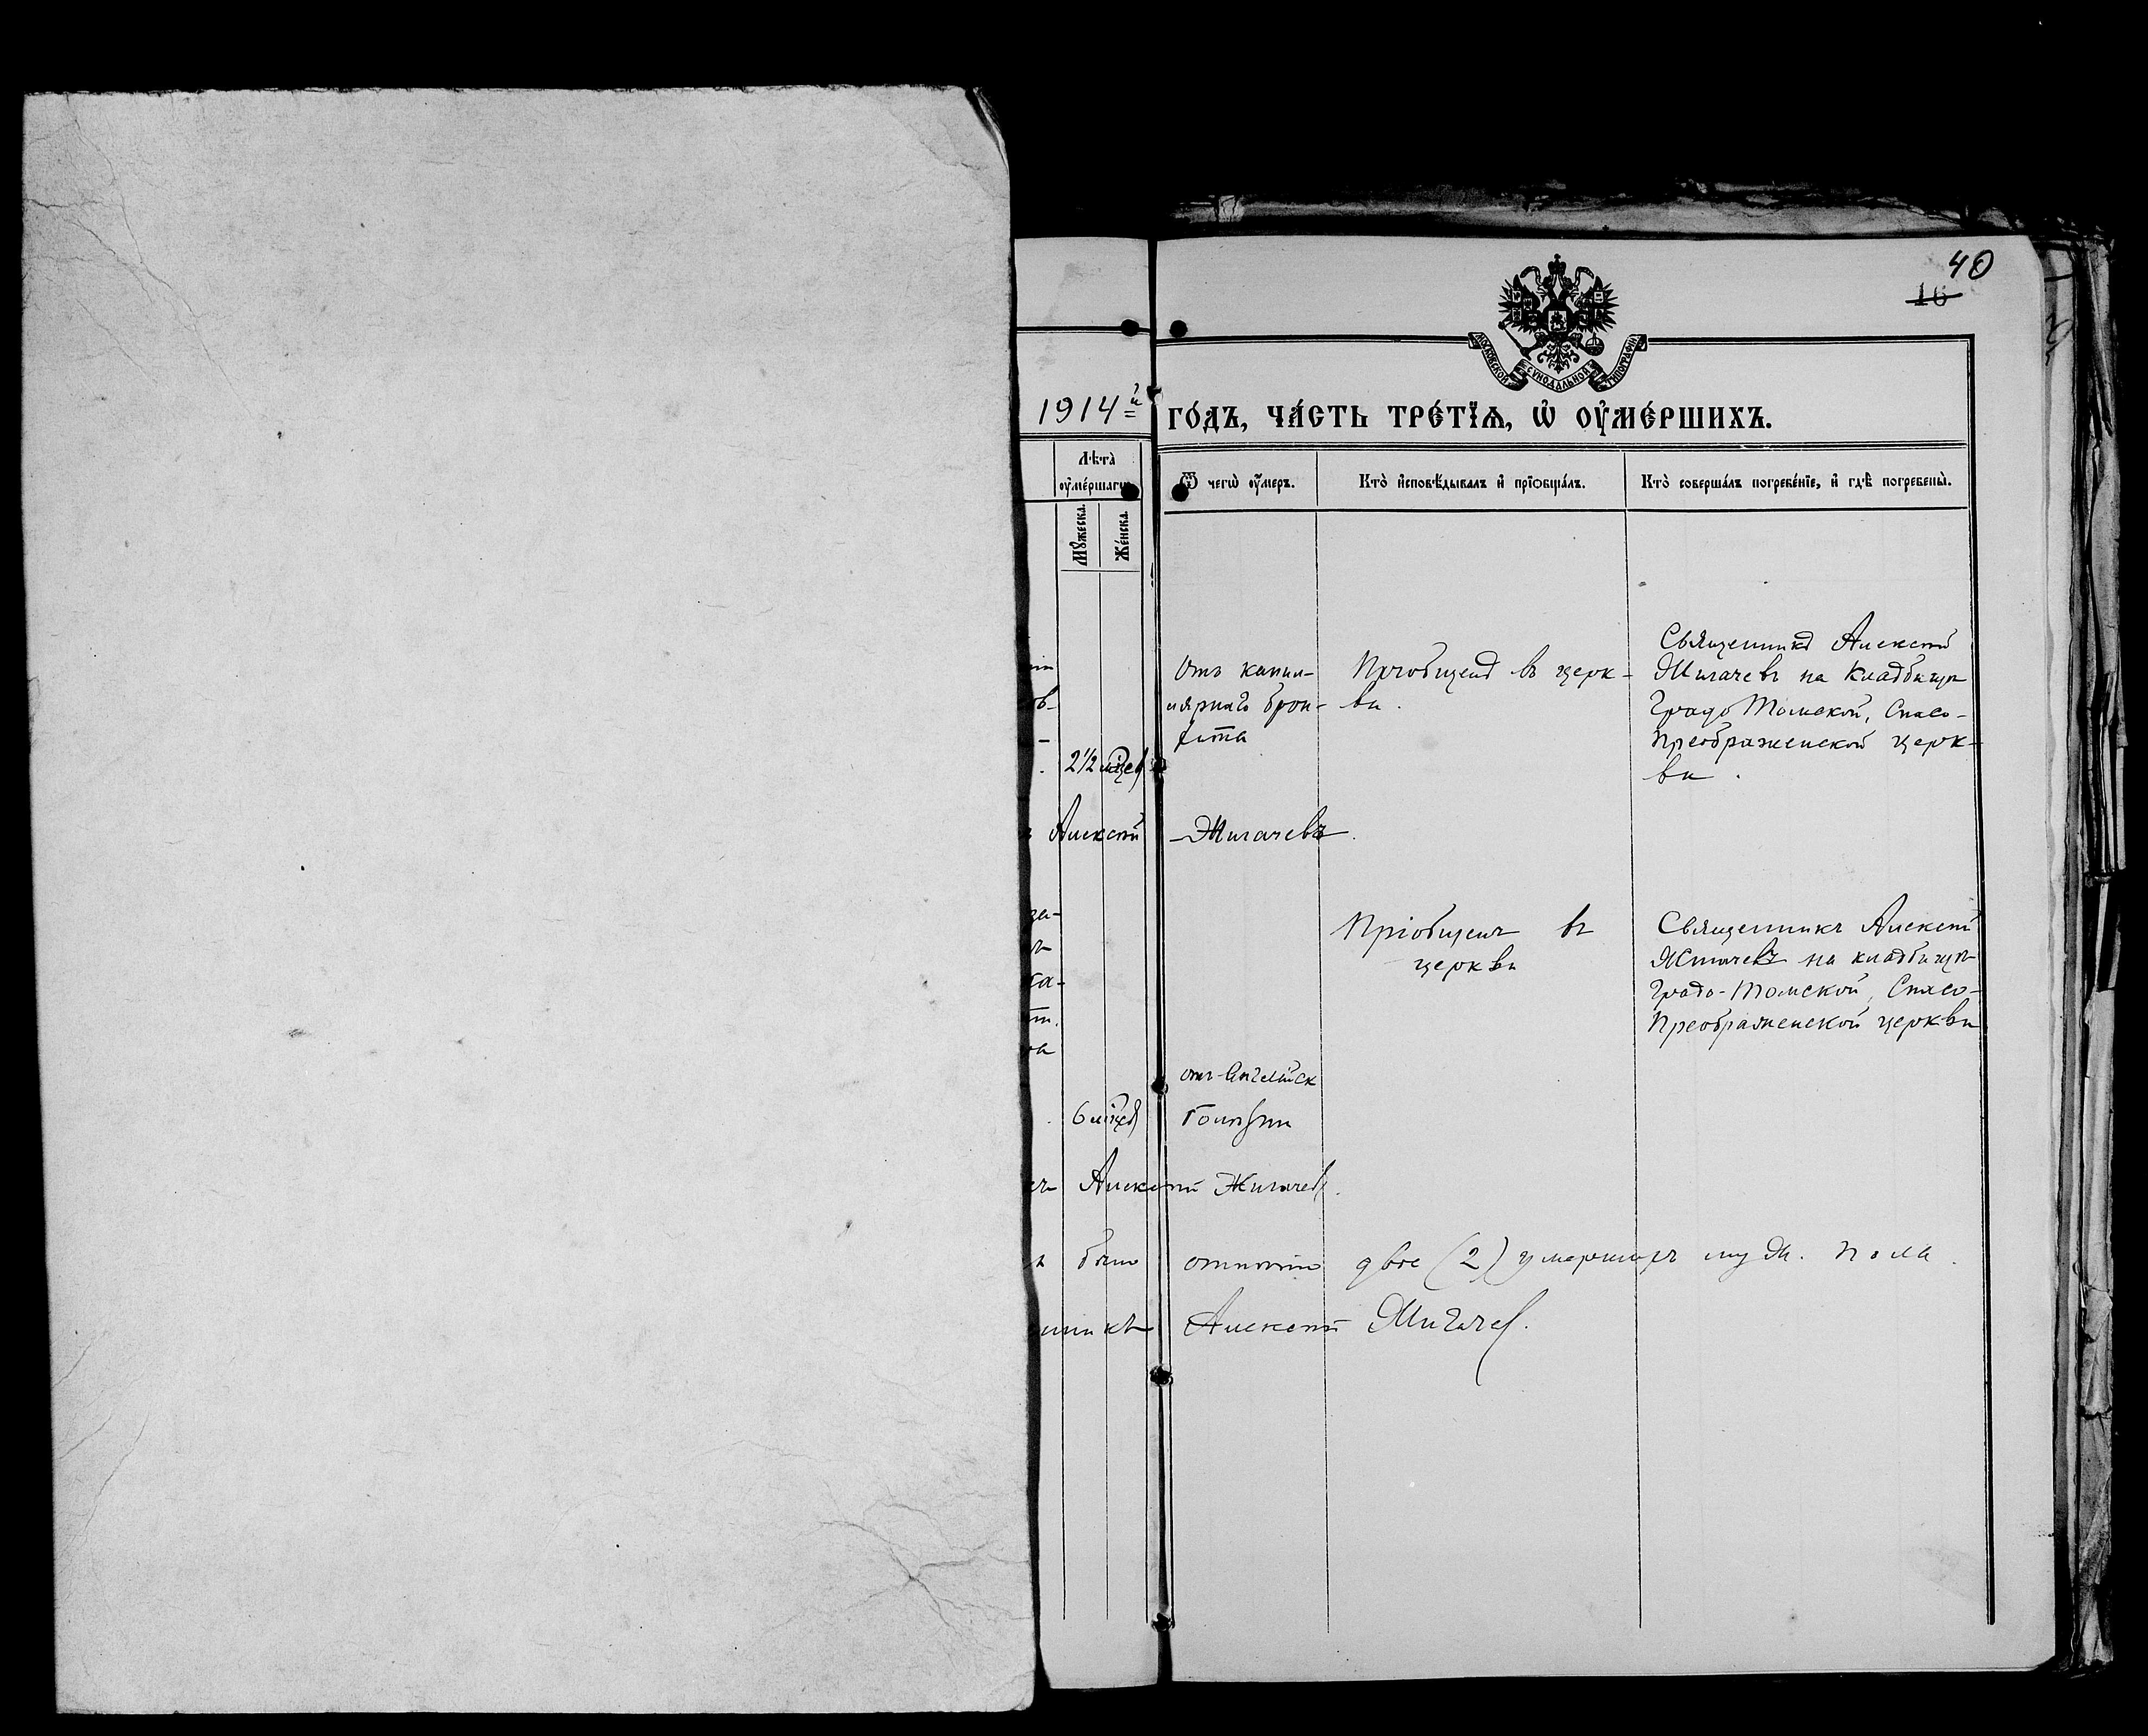 40
16
МОСКОВСКОЙ СѴНОДАЛЬНОЙ ТИПОГРАФІИ
1914й го́дъ, ча́сть тре́тїѧ, ѡ҆ ᲂу҆ме́ршихъ.
Лѣ́та ᲂу҆ме́ршагѡ
Мꙋ́жеска.
Же́нска.
Ѿ чегѡ̀ ᲂу҆́меръ.
Кто̀ и҆сповѣ́дывалъ и҆ прїѡбща́лъ.
Кто̀ соверша́лъ погребе́нїе, и҆ гдѣ̀ погребены̀.
2 1/2 мцев
Отъ капил-
лярнаго брон-
хита
Пріобщенъ въ церк-
ви.
Священникъ Алексѣй
Жигачевъ на кладбищѣ
Градо Томской, Спасо-
Преображенской церк-
ви.
Алексѣй Жигачевъ.
за-
ка-
6 мцев
отъ Англійск
болѣзни
Пріобщенъ въ
церкви
Священникъ Алексѣй
Жигачевъ на кладбищѣ
Градо-Томской, Спасо-
Преображенской церкви
Алексѣй Жигачев.
было отпѣто двое (2) умершихъ муж. пола.
нникъ Алексѣй Жигачев.